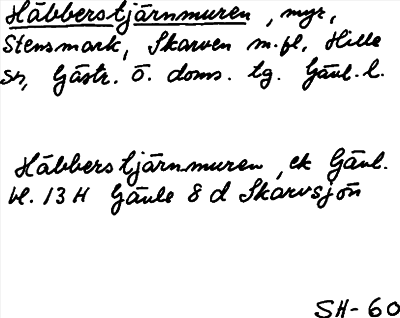 Häbberstjärnmuren, myr,
Stensmark, Skarven m.fl, Hille
sn, Gästr. ö. doms. tg. Gävl. l.
Häbberstjärnmuren, ek Gävl.
bl. 13 H Gävle 8 d Skarvsjön
SH-60